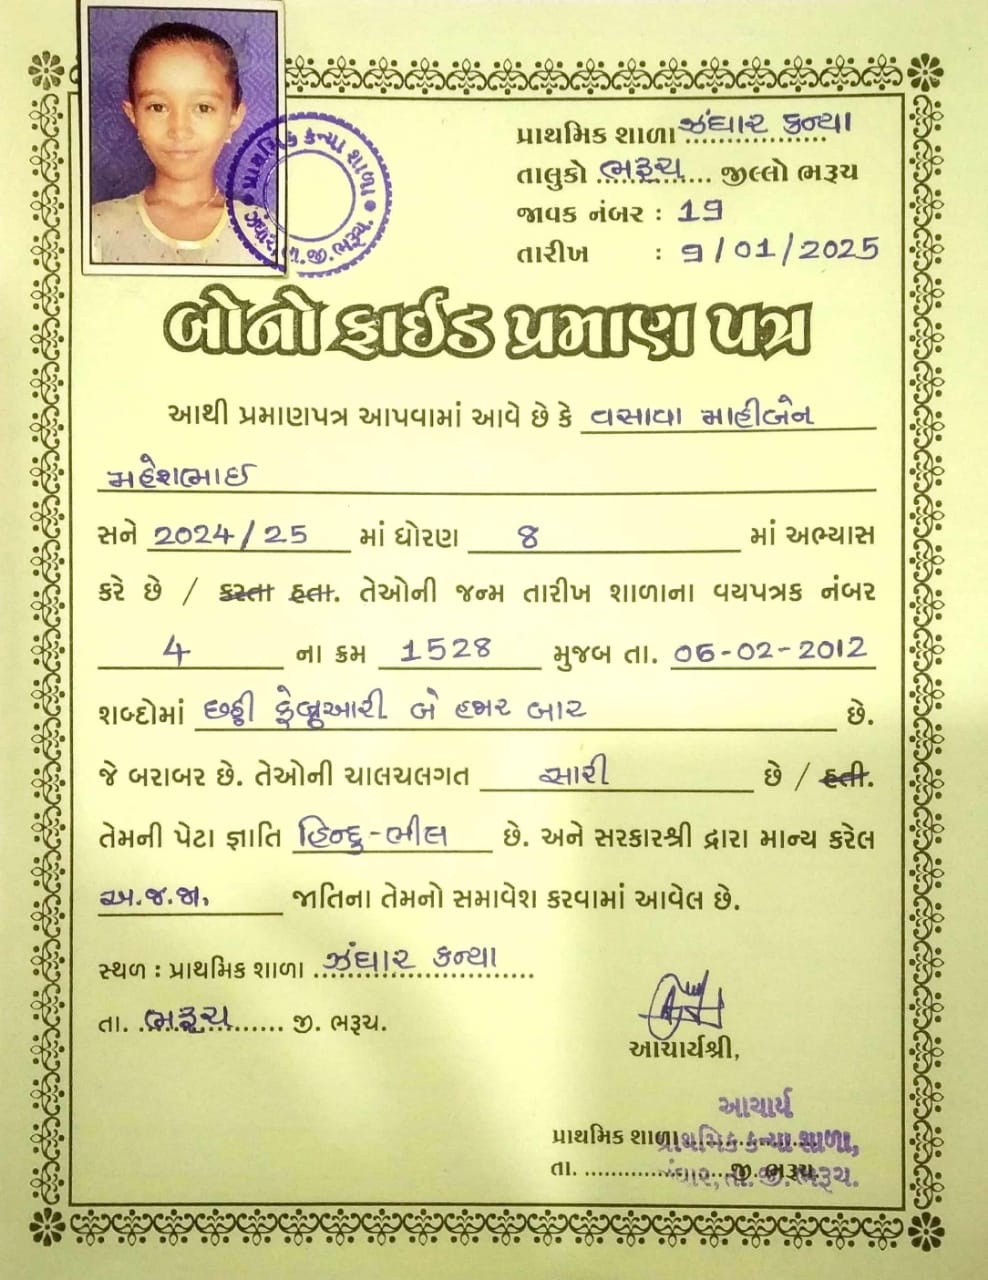 પ્રાથમિક કન્યા શાળા
ઝંઘાર, તા.જી.ભરૂચ.
પ્રાથમિક શાળા ઝંઘાર કન્યા
તાલુકો ભરૂચ જીલ્લો ભરૂચ
જાવક નંબર : 19
તારીખ : 9/01/2025
બોનો ફાઈડ પ્રમાણ પત્ર
આથી પ્રમાણપત્ર આપવામાં આવે છે કે વસાવા માહીબેન
મહેશભાઈ
સને 2024/25 માં ધોરણ 8 માં અભ્યાસ
કરે છે / કરતા હતા. તેઓની જન્મ તારીખ શાળાના વયપત્રક નંબર
4 ના ક્રમ 1528 મુજબ તા. 06-02-2012
શબ્દોમાં છઠ્ઠી ફેબ્રુઆરી બે હજાર બાર છે.
જે બરાબર છે. તેઓની ચાલચલગત સારી છે / હતી.
તેમની પેટા જ્ઞાતિ હિન્દુ-ભીલ છે. અને સરકારશ્રી દ્વારા માન્ય કરેલ
અ.જ.જા. જાતિના તેમનો સમાવેશ કરવામાં આવેલ છે.
સ્થળ : પ્રાથમિક શાળા ઝંઘાર કન્યા
તા. ભરૂચ જી. ભરૂચ.
આચાર્યશ્રી,
આચાર્ય
પ્રાથમિક શાળા
પ્રાથમિક કન્યા શાળા,
તા. જી. ભરૂચ.
ઝંઘાર, તા.જી.ભરૂચ.